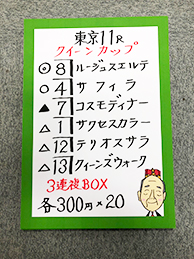 東京11R
クイーンカップ
◎8ルージュスエルテ
○4サフィラ
▲7コスモディナー
△1サクセスカラー
△12テリオスサラ
△13クイーンズウォーク
3連複BOX
各300円×20